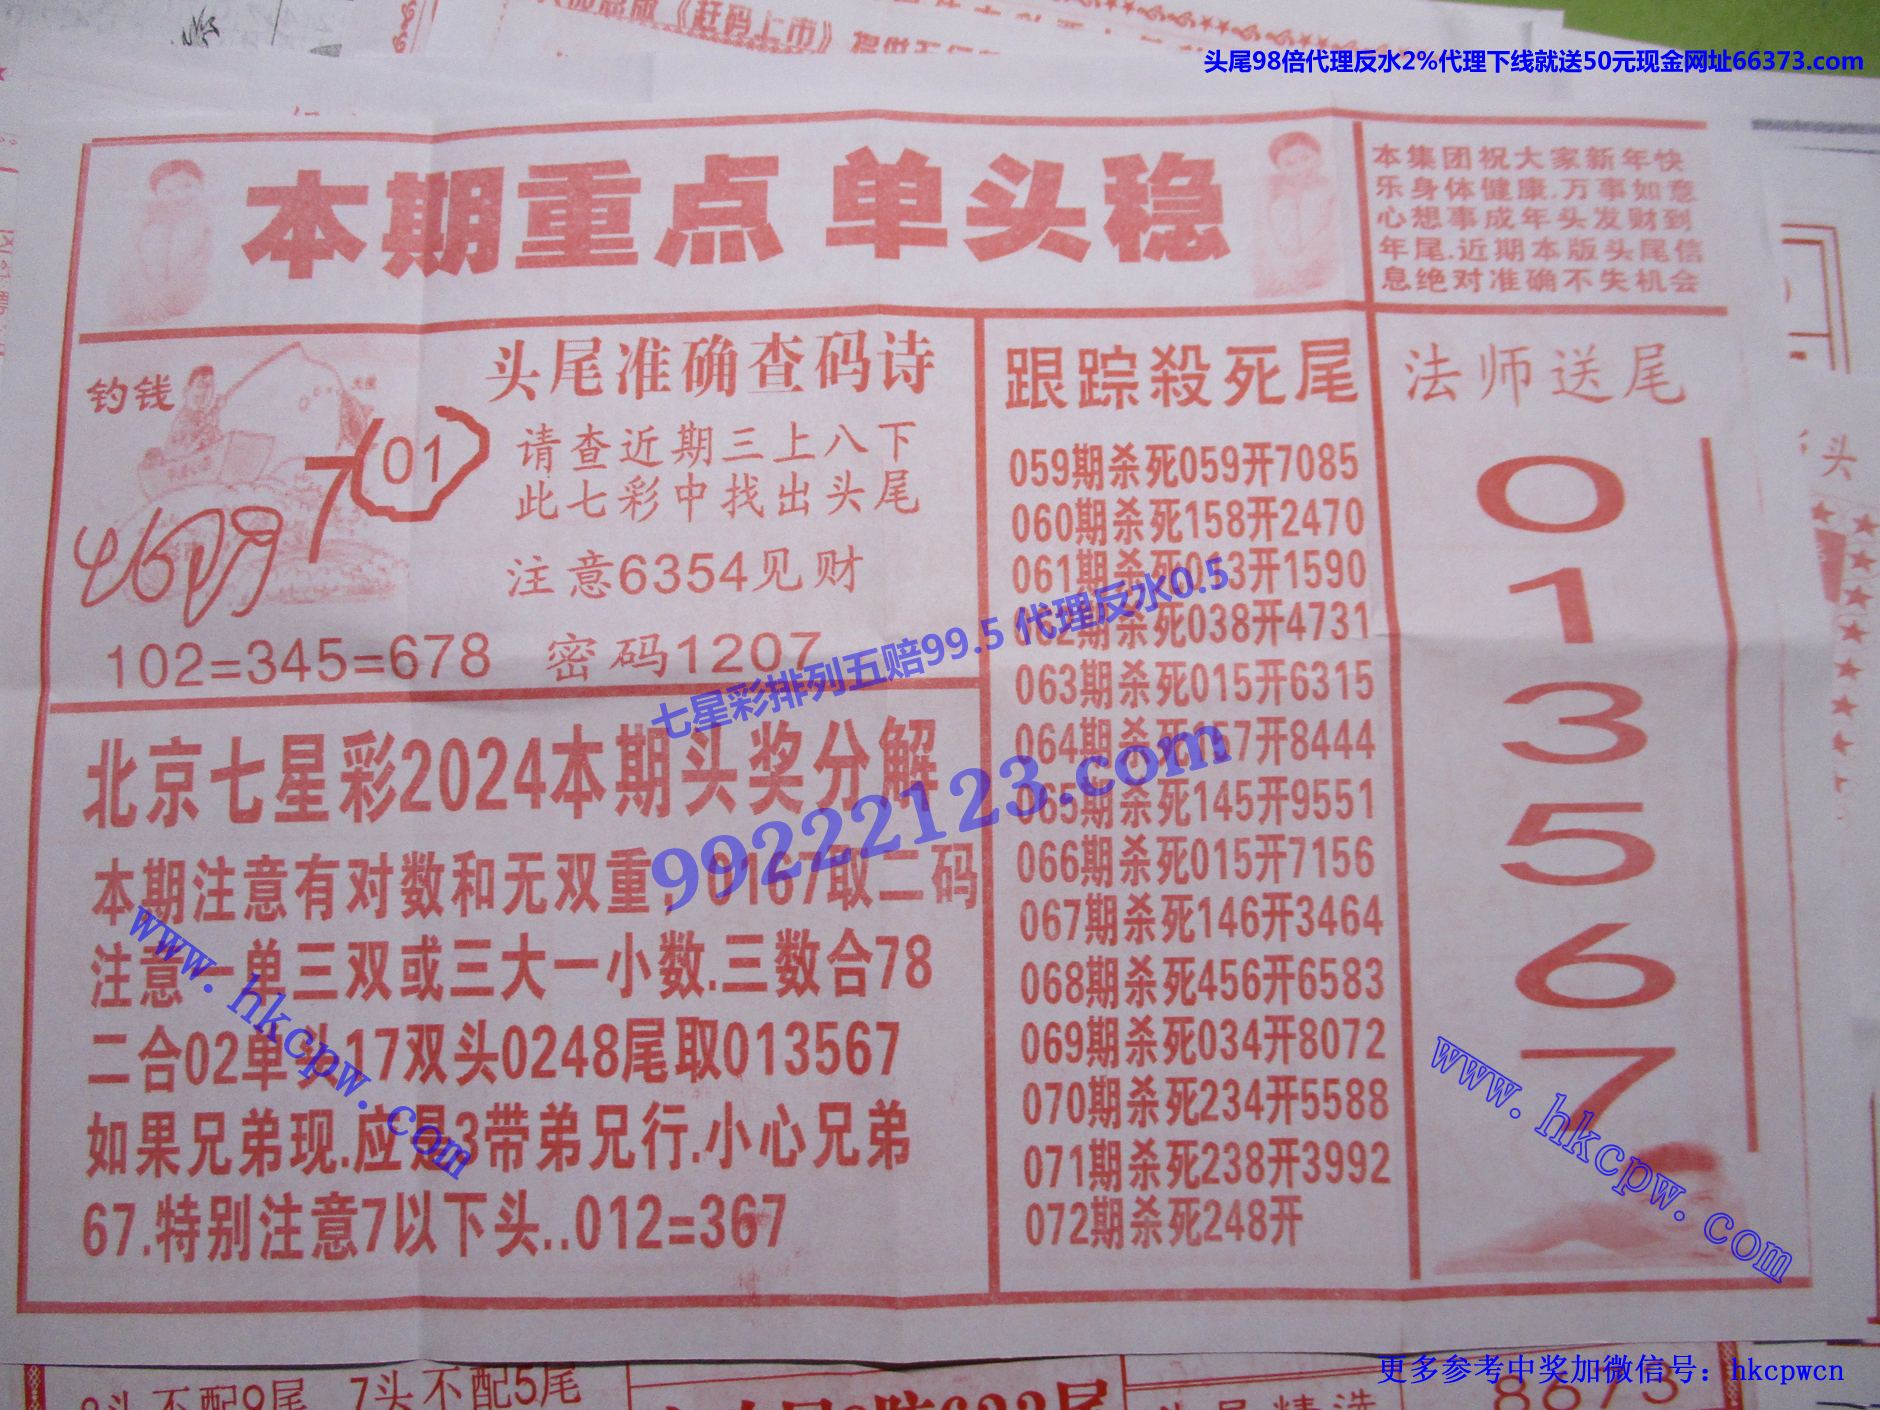 头尾98倍代理反水2%代理下线就送50元现金网址66373.com
《赶码上市》
本期重点 单头稳
本集团祝大家新年快
乐身体健康.万事如意
心想事成年头发财到
年尾.近期本版头尾信
息绝对准确不失机会
钓钱
01
7
头尾准确查码诗
请查近期三上八下
此七彩中找出头尾
注意6354见财
102=345=678 密码1207
北京七星彩2024本期头奖分解
本期注意有对数和无双重，0167取二码
注意一单三双或三大一小数.三数合78
二合02单头17双头0248尾取013567
如果兄弟现.应是3带弟兄行.小心兄弟
67.特别注意7以下头..012=367
跟踪殺死尾
059期杀死059开7085
060期杀死158开2470
061期杀死013开1590
062期杀死038开4731
063期杀死015开6315
064期杀死157开8444
065期杀死145开9551
066期杀死015开7156
067期杀死146开3464
068期杀死456开6583
069期杀死034开8072
070期杀死234开5588
071期杀死238开3992
072期杀死248开
法师送尾
0
1
3
5
6
7
七星彩排列五赔99.5 代理反水0.5
99222123.com
www.hkcpw.com
www.hkcpw.com
头
7头不配5尾
8673
更多参考中奖加微信号：hkcpwcn